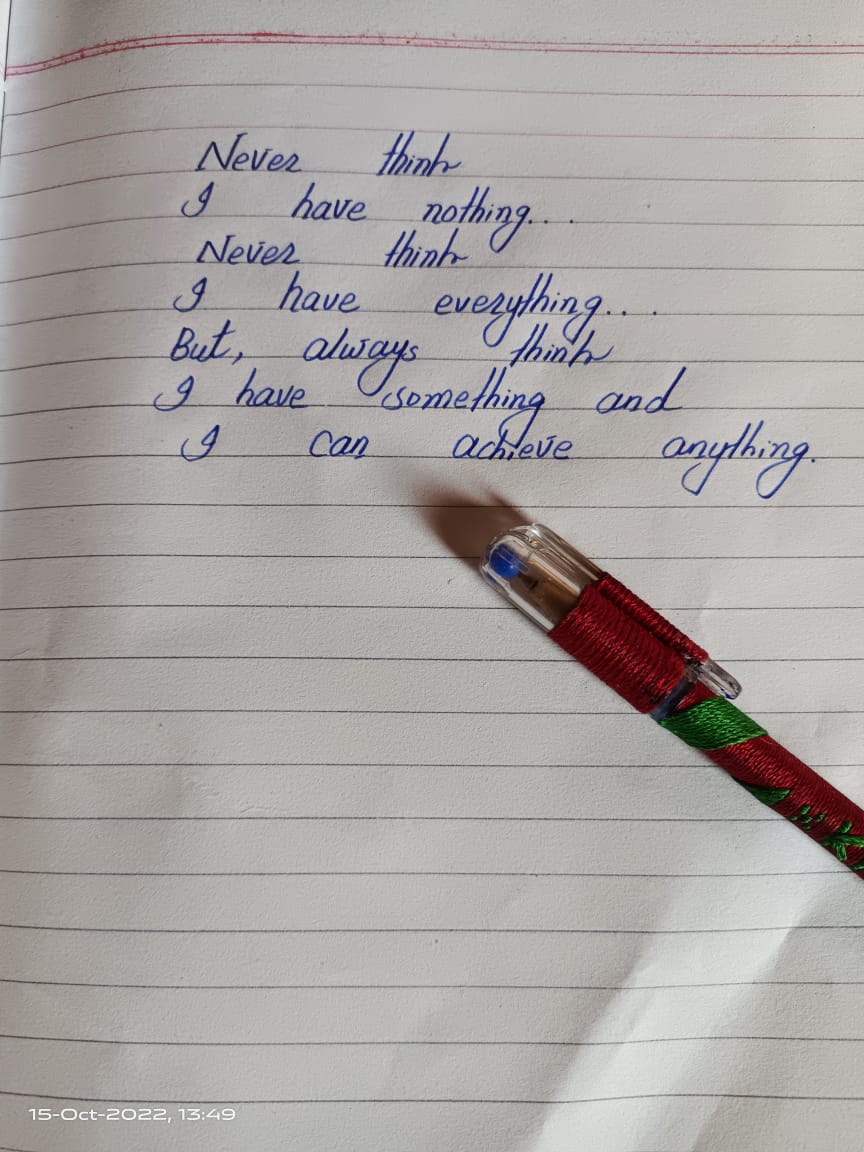 Never think
I have nothing...
Never think
I have everything....
But, always think
I have something and
I can achieve anything.
15-Oct-2022, 13:49